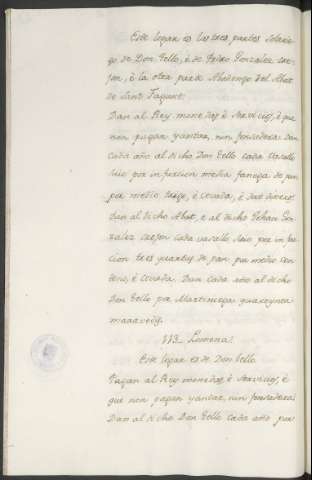 Este logar es las tres partes Solarie-
go de Don Tello, è de Pedro Gonzalez Car-
jon, è la otra parte Abadengo del Abat
de Sant Fagunt.
Dan al Rey monedas è Servicios, è que
non pagan yantar, nin fonsadera. Dan
cada año al dicho Don Tello cada vasallo
suio por infurcion media fanega de pan
por medio trigo, è cevada, è dos dineros.
Dan al dicho Abat, e al dicho
Gonzalez cada vasallo suio por infur-
cion tres quartas de pan por medio cen-
teno, è cevada. Dan cada año al dicho
Don Tello por Martiniega quarenta
maravedis.
Lomena.
Este logar es de Don Tello.
Pagan al Rey monedas, è Servicios, è
que non pagan yantar, nin fonsadera.
Dan al dicho Don Tello cada año por